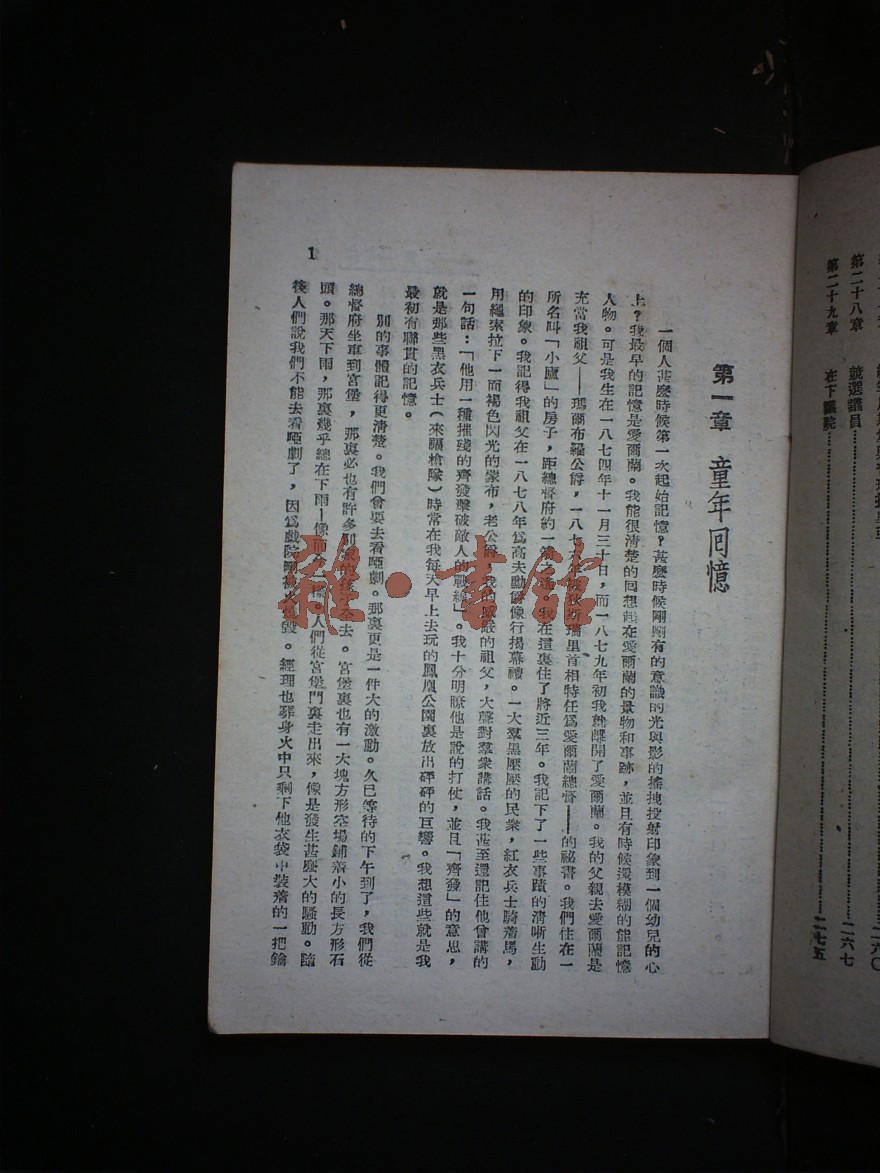 第二十八章 競選議員……二六七
第二十九章 在下議院……二七五
第一章 童年回憶
一個人甚麼時候第一次起始記憶？甚麼時候剛剛有的意識的光與影的搖拽投射印象到一個幼兒的心
上？我最早的記憶是愛爾蘭。我能很清楚的回想起在愛爾蘭的景物和事跡，並且有時候還模糊的能記憶
人物。可是我生在一八七四年十一月三十日，而一八七九年初我就離開了愛爾蘭。我的父親去愛爾蘭是
充當我祖父——瑪爾布羅公爵，一八七六年被狄斯瑞里首相特任為愛爾蘭總督——的祕書。我們住在一
所名叫「小廬」的房子，距總督府約一箭之遙。我在這裏住了將近三年。我記下了一些事蹟的清晰生動
的印象。我記得我祖父在一八七八年為高夫勳爵像行揭幕禮。一大羣黑壓壓的民衆，紅衣兵士騎着馬，
用繩索拉下一面褐色閃光的蒙布，老公爵，我的威嚴的祖父，大聲對羣衆講話。我甚至還記住他會講的
一句話：「他用一種摧殘的齊發擊破敵人的戰線」。我十分明瞭他是說的打仗，並且「齊發」的意思，
就是那些黑衣兵士（來福槍隊）時常在我每天早上去玩的鳳凰公園裏放出砰砰的巨響。我想這些就是我
最初有聯貫的記憶。
別的事體記得更清楚。我們會要去看啞劇。那裏更是一件大的激動。久已等待的下午到了，我們從
總督府坐車到宮堡，那裏必也有許多別的孩
去。宮堡裏也有一大塊方形空場鋪着小的長方形石
頭。那天下雨，那裏幾乎總在下雨—像而今一樣。人們從宮堡門裏走出來，像是發生甚麼大的騷動。隨
後人們說我們不能去看啞劇了，因為戲院剛被火燒毀。經理也葬身火中只剩下他衣袋中裝着的一把鑰
1
雜·書館